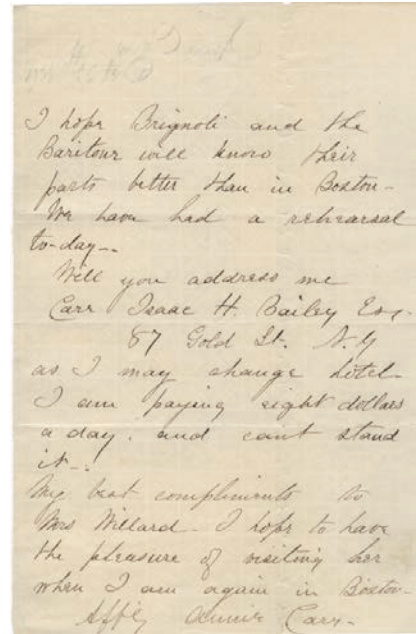 I hope Brignoli and the
Baritone will know their
parts better than in Boston-
We have had a rehearsal
to-day-.
Will you address me
Care Isaac H. Bailey Esq.
87 Gold St. N.Y
as I may change hotel-
I am paying eight dollars
a day. and can't stand
it-.
My best compliments to
Mrs Willard- I hope to have
the pleasure of visiting her
when I am again in Boston-
Affly Annie Cary-